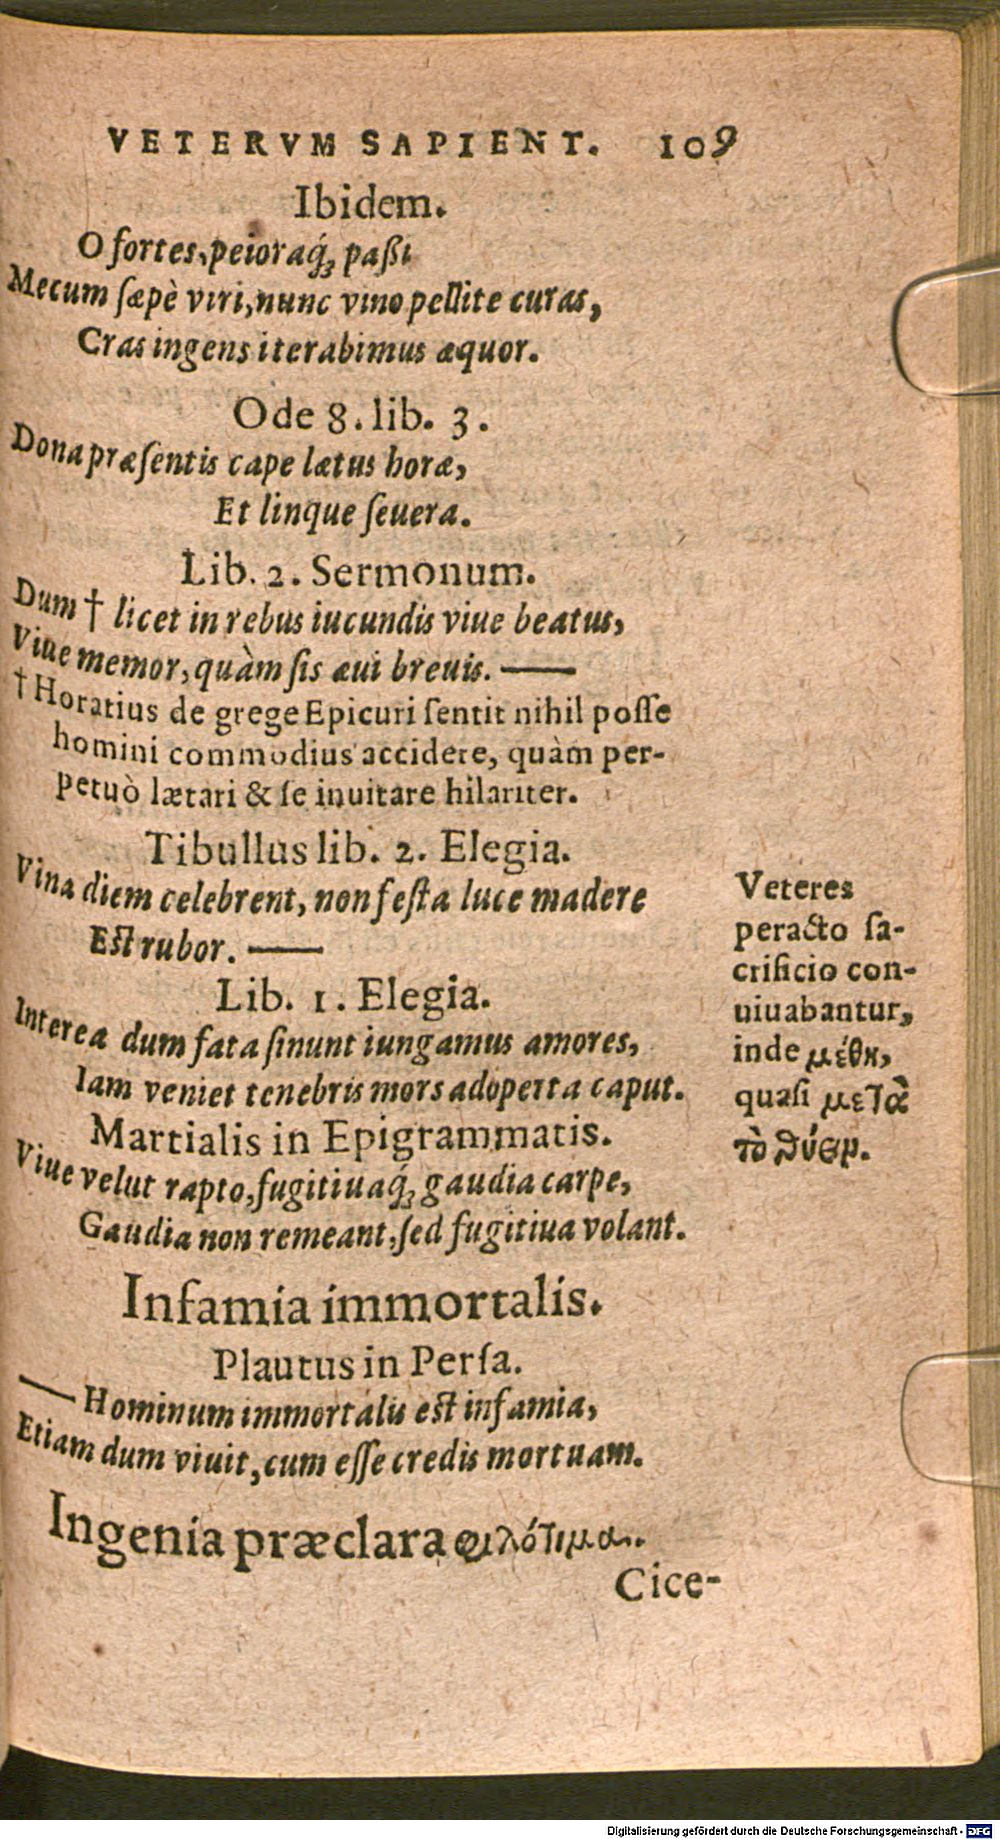 VETERVM SAPIENT. 109
Ibidem.
O fortes, peioraq́; paßi
Mecum sæpè viri, nunc vino pellite curas,
Cras ingens iterabimus æquor.
Ode 8. lib. 3.
Dona præsentis cape lætus horæ,
Et linque seuera.
Lib. 2. Sermonum.
Dum † licet in rebus iucundis viue beatus,
Viue memor, quàm sis æui breuis. —
† Horatius de grege Epicuri sentit nihil posse
homini commodius accidere, quàm per-
petuò lætari & se inuitare hilariter.
Tibullus lib. 2. Elegia.
Vina diem celebrent, non festa luce madere
Est rubor. —
Lib. 1. Elegia.
Interea dum fata sinunt iungamus amores,
Iam veniet tenebris mors adoperta caput.
Martialis in Epigrammatis.
Viue velut rapto, fugitiuaq́; gaudia carpe,
Gaudia non remeant, sed fugitiua volant.
Infamia immortalis.
Plautus in Persa.
— Hominum immortalis est infamia,
Etiam dum viuit, cum esse credis mortuam.
Ingenia præclara φιλότιμα.
Cice-
Veteres
peracto sa-
crificio con-
uiuabantur,
inde μέθη,
quasi μετὰ
τὸ θύειν.
Digitalisierung gefördert durch die Deutsche Forschungsgemeinschaft - DFG